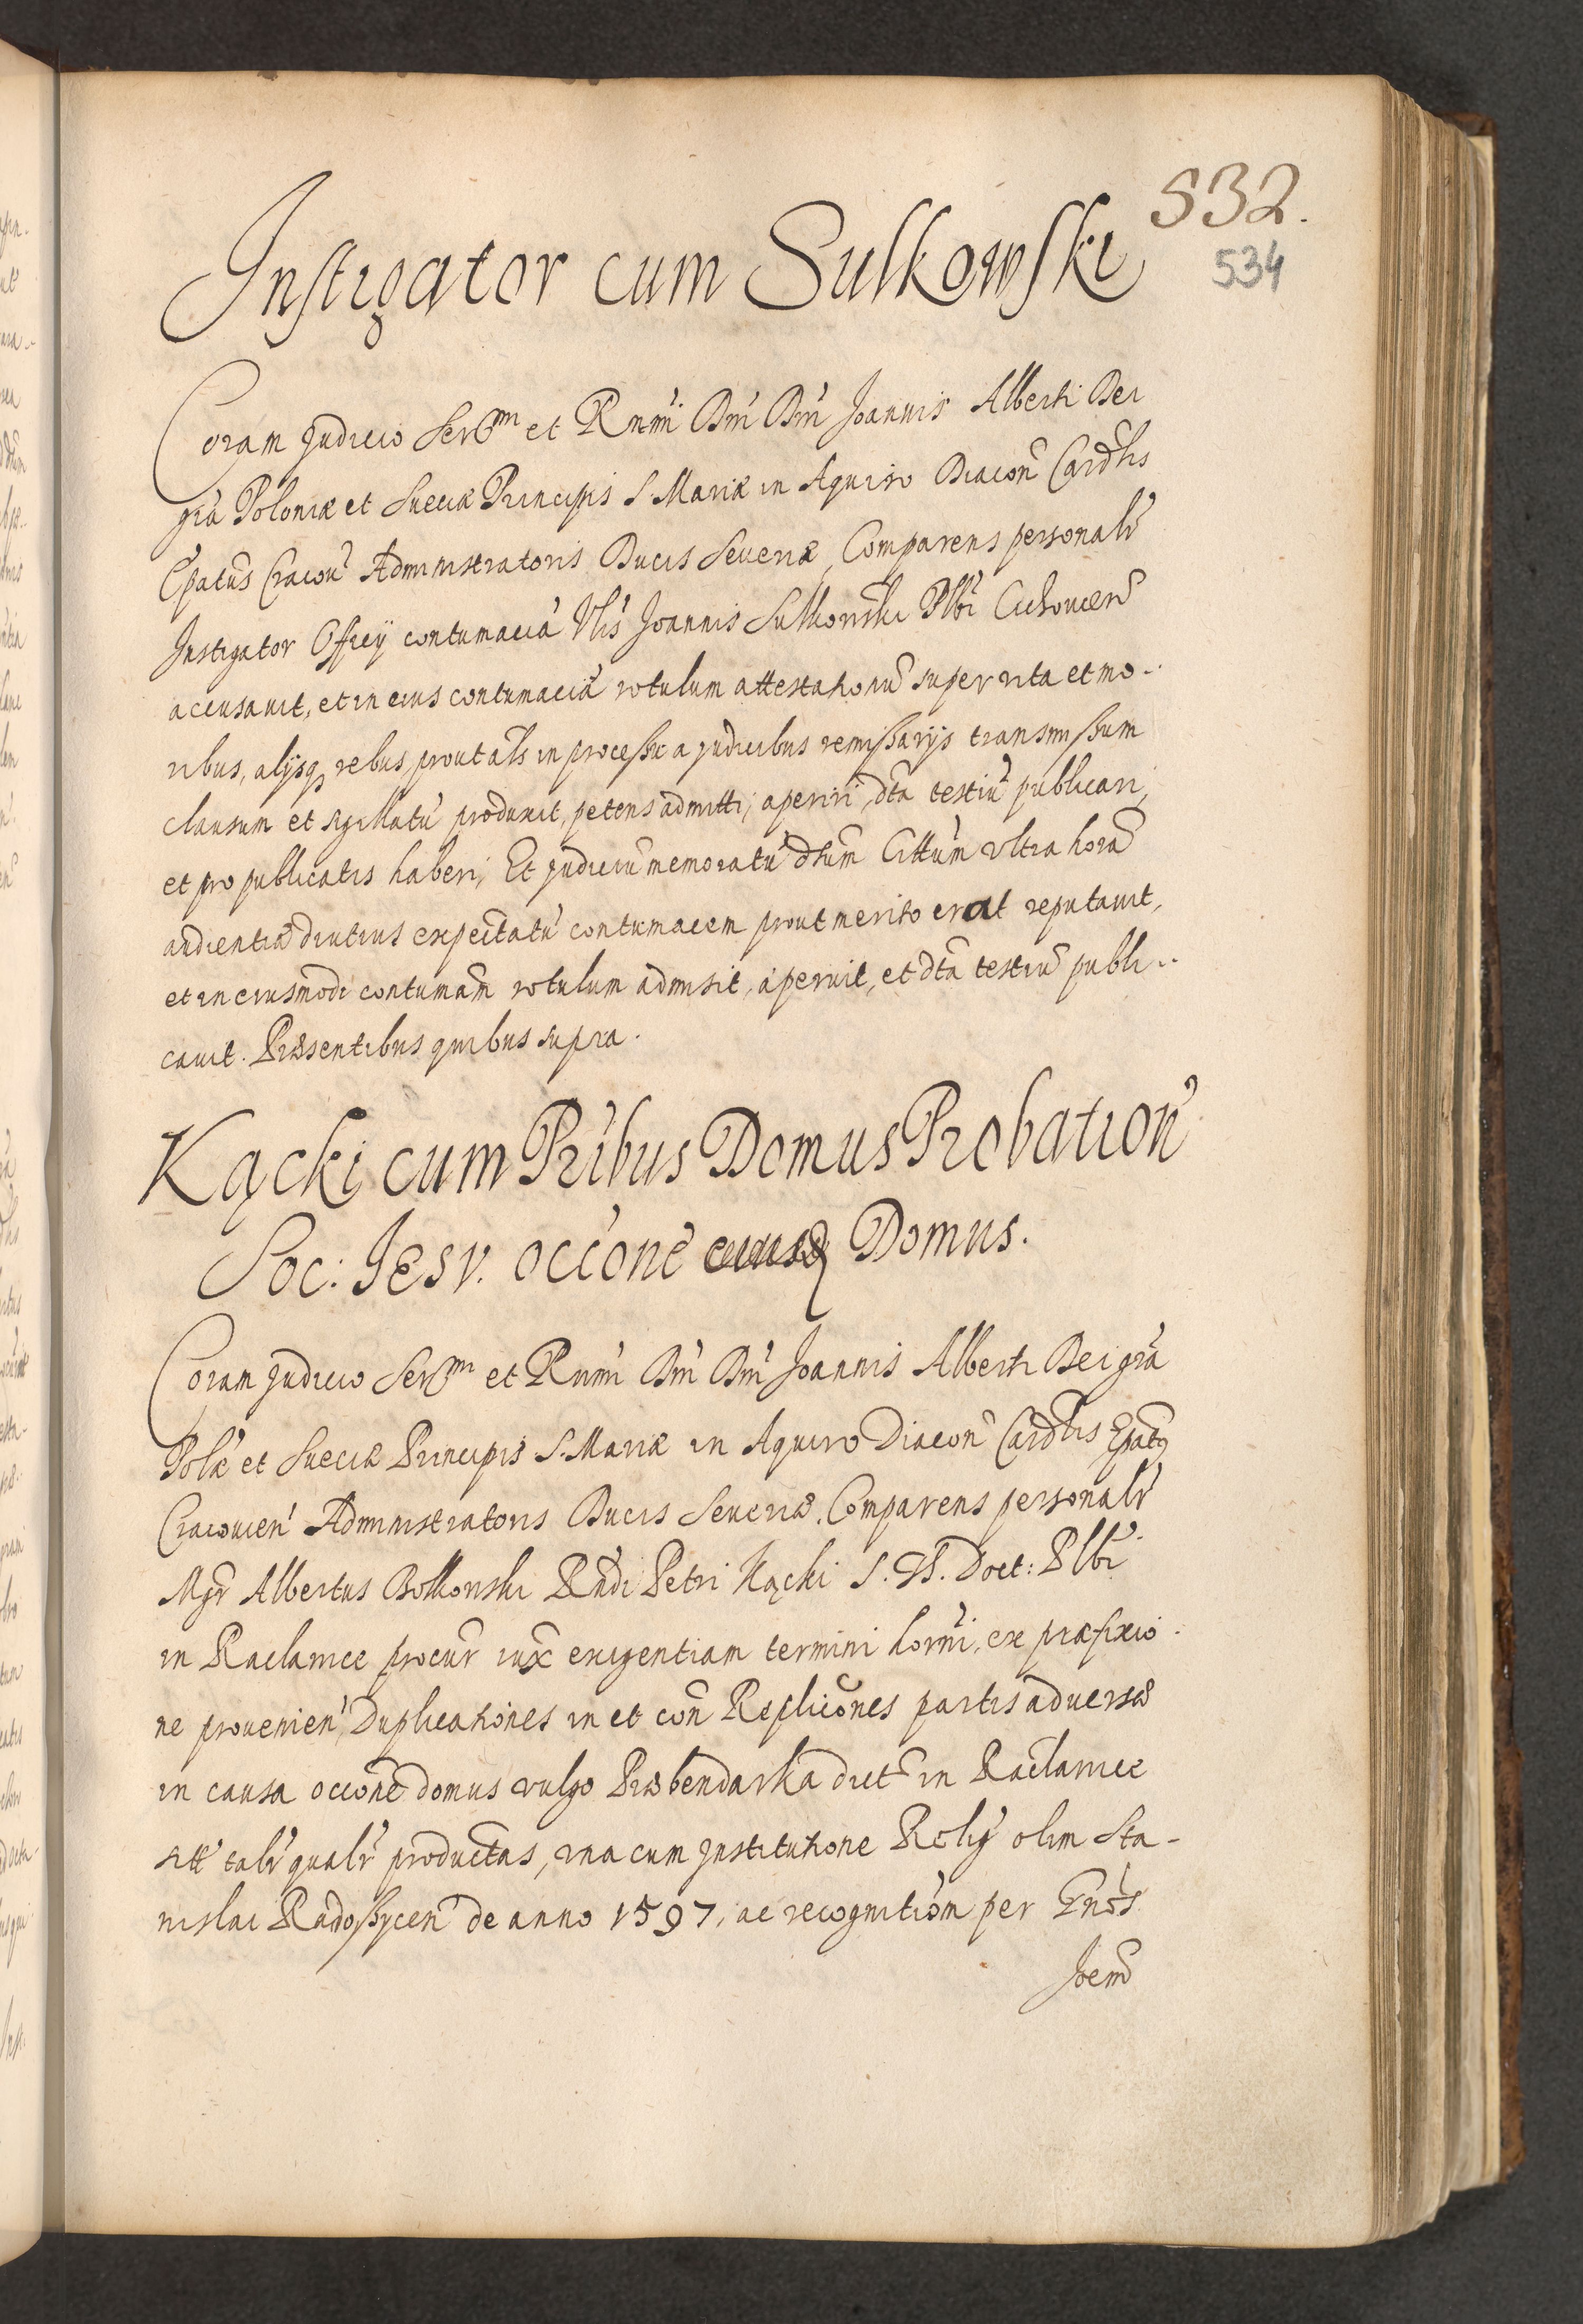 532.
534
Instigator cum Sulkowski
Coram Judicio Ser̃m et Rnmi Dni Dni Joannis Alberti Dei
gra Poloniæ et Sueciæ Principis S. Mariæ in Aquiro Diacon Cardlis
Epatus Cracou Administratoris Ducis Seueriæ, Comparens personalr
Instigator Officij contumacia Vlis Joannis Sulkowski Plbi
accusauit, et in eius contumacia rotulum attestationu super vita et mo-
ribus, alijsq rebus, prout als in processu a judicibus remissarijs transmissum
clausum et sigillatu produxit, petens admitti, aperiri, dta testiu publicari,
et pro publicatis haberi, Et judiciu memoratu Cittum vltra hora
audientiæ diutius expectatu contumacem prout merito erat reputauit,
et in eiusmodi contumam rotulum admisit, aperuit, et dta testiu publi-
cauit. Præsentibus quibus supra.
Kącki cum Pribus Domus Probation
Soc: Jesv. occione eiusd Domus.
Coram Judicio Ser̃m et Rnmi Dni Dni Joannis Alberti Dei gra
Polæ et Sueciæ Principis S. Mariæ in Aquiro Diacon Cardlis Epatq
Cracouien Administratoris Ducis Seueriæ. Comparens personalr
Mgr Albertus Bolkowski Rndi Petri Kącki S. Th. Doct: Plbi
in Raclawice procur iux exigentiam termini horni, ex præfixio-
ne prouenien, Duplicationes in et con Replicones partis aduersæ
in causa occione domus vulgo Præbendarska dict in Raclawice
sitt talr qualr productas, vna cum Institutione Rclij olim Sta-
nislai Radoszycen de anno 1597, ac recognition per Gnos
Joem